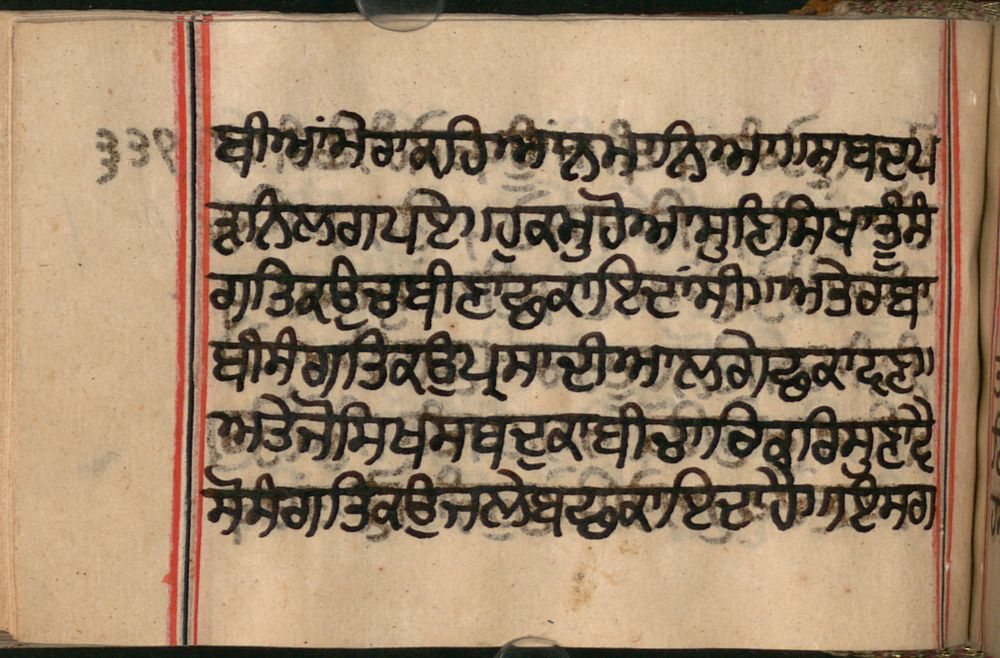 ਬੀਆਂਮੇਰਾਕਹਿਆਂਨਮੰਨਿਆ॥ਸਬਦਪ
ੜਨਿਲਗਪਏ॥ਹੁਕਮੁਹੋਆਸੁਣਿਸਿਖਾਤੂੰਸੰ
ਗਤਿਕਉਚਬੀਣਾਛਕਾਇਦਾਂਸੀ॥ਅਤੇਰਬਾ
ਬੀਸੰਗਤਿਕਉਪ੍ਰਸਾਦੀਆਲਗੇਛਕਾਵਣ॥
ਅਤੇਜੋਸਿਖਸਬਦੁਕਾਬੀਚਾਰਿਕਰਿਸੁਣਾਵੈ
ਸੋਸੰਗਤਿਕਉਜਲੇਬਛਕਾਇਦਾਹੈ॥ਇਸਗ